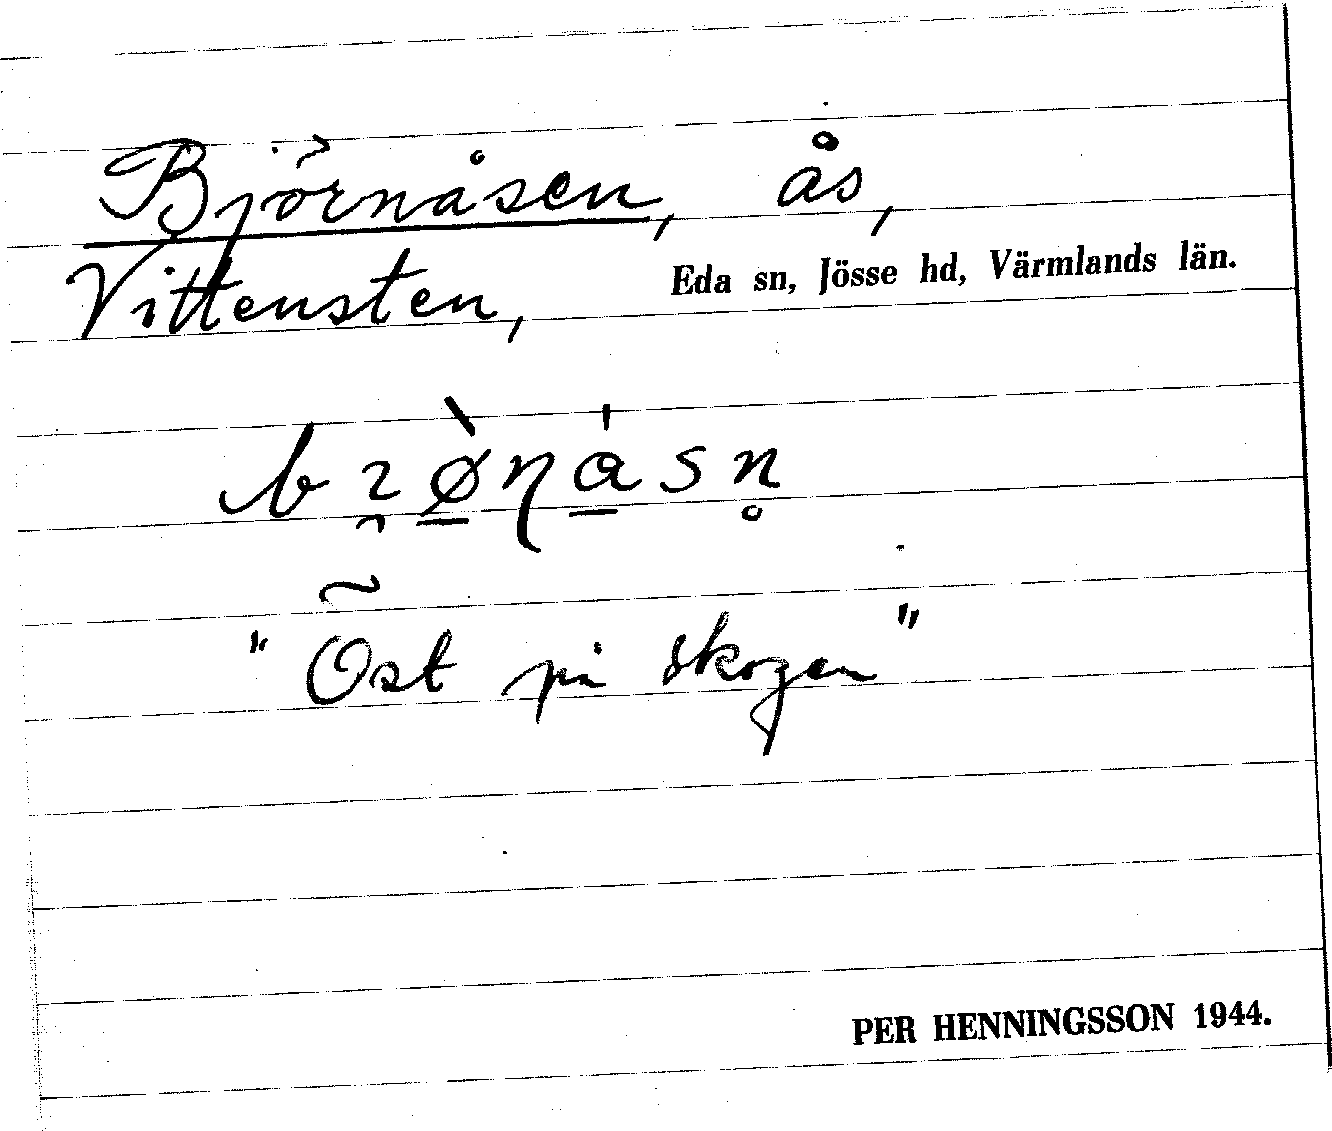 Björnåsen, ås,
Vittensten, Eda sn, Jösse hd, Värmlands län.
"Öst på skogen"
PER HENNINGSSON 1944.